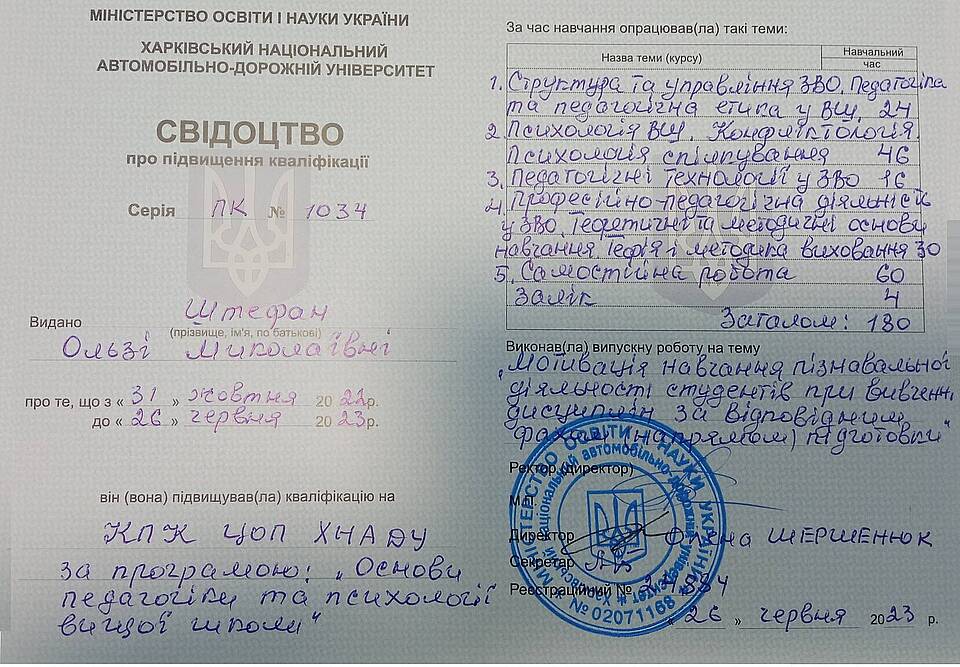 МІНІСТЕРСТВО ОСВІТИ І НАУКИ УКРАЇНИ
ХАРКІВСЬКИЙ НАЦІОНАЛЬНИЙ
АВТОМОБІЛЬНО-ДОРОЖНІЙ УНІВЕРСИТЕТ
СВІДОЦТВО
про підвищення кваліфікації
Серія ПК № 1034
Видано Штефан
(прізвище, ім'я, по батькові)
Ользі Миколаївні
про те, що з « 31 » жовтня 2022р.
до « 26 » червня 2023р.
він (вона) підвищував(ла) кваліфікацію на
КПК ЦОП ХНАДУ
за програмою: „Основи
педагогіки та психології
вищої школи"
За час навчання опрацював(ла) такі теми:
Назва теми (курсу) Навчальний
час
1. Структура та управління ЗВО. Педагогіка
та педагогічна етика у ВШ. 24
2. Психологія ВШ. Конфліктологія.
Психологія спілкування 46
3. Педагогічні технології у ЗВО 16
4. Професійно-педагогічна діяльність
у ЗВО. Теоретичні та методичні основи
навчання. Теорія і методика виховання 30
5. Самостійна робота 60
Залік 4
Загалом: 180
Виконав(ла) випускну роботу на тему
„Мотивація навчання пізнавальної
діяльності студентів при вивченні
дисциплін за відповідним
фахом (напрямом) підготовки"
Ректор (директор)
М.П.
Директор Олена ШЕРШЕНЮК
Секретар
Реєстраційний № 884
« 26 » червня 2023 р.
МІНІСТЕРСТВО ОСВІТИ І НАУКИ УКРАЇНИ
Харківський національний автомобільно-дорожній університет
№ 02071168